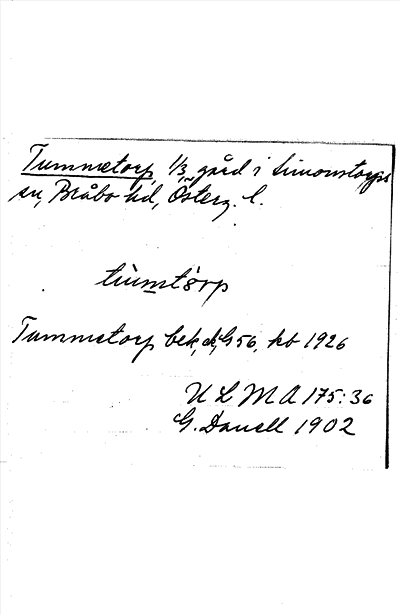 Tummetorp, 1/3, gård i Simonstorps
sn, Bråbo hd, Österg. l.
tùmtòrp
Tummetorp bek, G 56, kb 1926
U L M A 175:36
G. Danell 1902